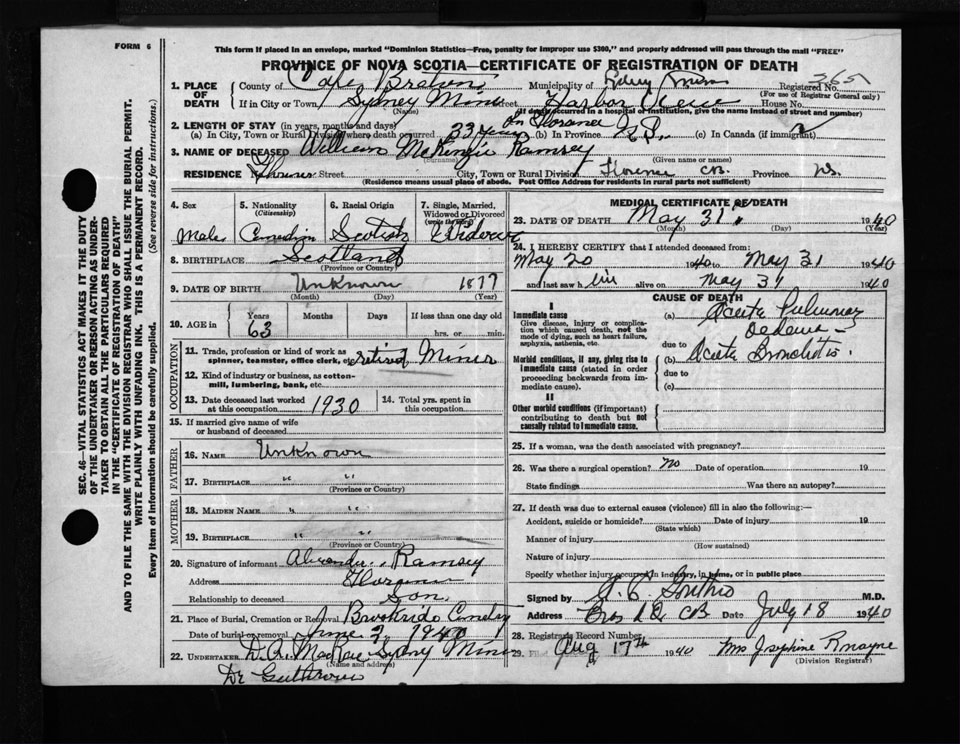 FORM 6
This form if placed in an envelope, marked "Dominion Statistics—Free, penalty for improper use $300," and properly addressed will pass through the mail "FREE"
PROVINCE OF NOVA SCOTIA—CERTIFICATE OF REGISTRATION OF DEATH
365
1. PLACE OF DEATH County of Cape Breton Municipality of Sydney Mines Registered No.
(For use of Registrar General only)
If in City or Town Sydney Mines Street Harbor View House No.
(Name) (If death occurred in a hospital or institution, give the name instead of street and number)
2. LENGTH OF STAY (in years, months and days) in Florence
(a) In City, Town or Rural Division where death occurred 33 years (b) In Province (c) In Canada (if immigrant)
3. NAME OF DECEASED William McKenzie Ramsey
(Surname) (Given name or names)
RESIDENCE Street City, Town or Rural Division Florence C.B. Province N.S.
(Residence means usual place of abode. Post Office Address for residents in rural parts not sufficient)
4. Sex Male
5. Nationality (Citizenship) Canadian
6. Racial Origin Scotish
7. Single, Married, Widowed or Divorced (write the word) Widower
8. BIRTHPLACE Scotland
(Province or Country)
9. DATE OF BIRTH Unknown 1877
(Month) (Day) (Year)
10. AGE in Years Months Days If less than one day old
63 hrs. or min.
OCCUPATION
11. Trade, profession or kind of work as spinner, teamster, office clerk, etc. retired Miner
12. Kind of industry or business, as cotton-mill, lumbering, bank, etc.
13. Date deceased last worked at this occupation 1930
14. Total yrs. spent in this occupation
15. If married give name of wife or husband of deceased
FATHER
16. NAME Unknown
17. BIRTHPLACE " "
(Province or Country)
MOTHER
18. MAIDEN NAME " "
19. BIRTHPLACE " "
(Province or Country)
20. Signature of informant Alexander Ramsey
Address Florence
Relationship to deceased Son
21. Place of Burial, Cremation or Removal Brookside Cemetery
Date of burial or removal June 2, 1940
22. UNDERTAKER D. A. MacRae Sydney Mines
(Name and address)
MEDICAL CERTIFICATE OF DEATH
23. DATE OF DEATH May 31 1940
(Month) (Day) (Year)
24. I HEREBY CERTIFY that I attended deceased from
May 20 1940 to May 31 1940
and last saw him alive on May 31 1940
CAUSE OF DEATH
I
Immediate cause
Give disease, injury or complication which caused death, not the mode of dying, such as heart failure, asphyxia, asthenia, etc.
(a) Acute Pulmonary Oedema
due to
Morbid conditions, if any, giving rise to immediate cause (stated in order proceeding backwards from immediate cause)
(b) Acute Bronchitis.
due to
(c)
II
Other morbid conditions (if important) contributing to death but not causally related to immediate cause.
25. If a woman, was the death associated with pregnancy?
26. Was there a surgical operation? no Date of operation 19
State findings Was there an autopsy?
27. If death was due to external causes (violence) fill in also the following:—
Accident, suicide or homicide? Date of injury 19
(State which)
Manner of injury
(How sustained)
Nature of injury
Specify whether injury occurred in industry, in home, or in public place
Signed by M.D.
Address CB Date July 18 1940
28. Registrar's Record Number
29. Filed Aug 17th 1940 Mrs Josephine
(Division Registrar)
SEC. 46—VITAL STATISTICS ACT MAKES IT THE DUTY
OF THE UNDERTAKER OR PERSON ACTING AS UNDER-
TAKER TO OBTAIN ALL THE PARTICULARS REQUIRED
IN THE "CERTIFICATE OF REGISTRATION OF DEATH"
AND TO FILE THE SAME WITH THE DIVISION REGISTRAR WHO SHALL ISSUE THE BURIAL PERMIT.
WRITE PLAINLY WITH UNFADING INK. THIS IS A PERMANENT RECORD.
Every item of information should be carefully supplied. (See reverse side for instructions.)